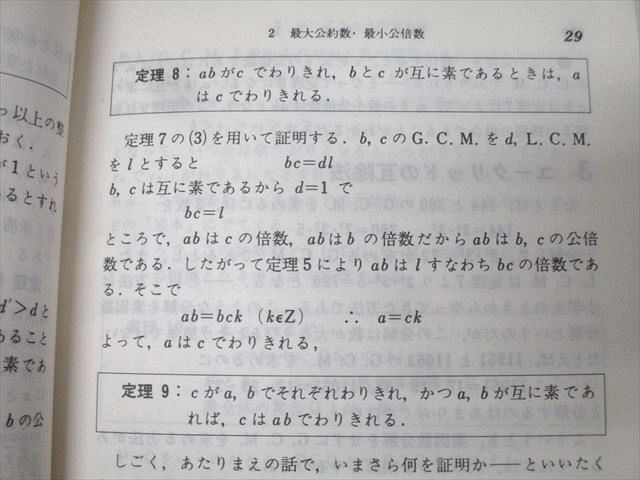 2 最大公約数・最小公倍数 29
定理8：abがcでわりきれ，bとcが互に素であるときは，a
はcでわりきれる．
定理7の(3)を用いて証明する．b, cのG. C. M. をd, L. C. M.
をlとすると bc=dl
b, cは互に素であるから d=1 で
bc=l
ところで，abはcの倍数，abはbの倍数だからabはb, cの公倍
数である．したがって定理5によりabはlすなわちbcの倍数であ
る．そこで
ab=bck (k∈Z) ∴ a=ck
よって，aはcでわりきれる，
定理9：cがa, bでそれぞれわりきれ，かつa, bが互に素であ
れば，cはabでわりきれる．
しごく，あたりまえの話で，いまさら何を証明か——といいたく
っ以上の整
おく．
が1という
るとすれ
d'>dと
あること
素であ
bの公